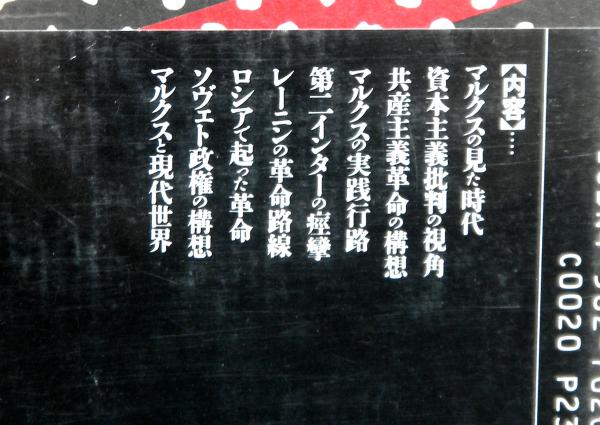 【内容】……
マルクスの見た時代
資本主義批判の視角
共産主義革命の構想
マルクスの実践行路
第二インターの痙攣
レーニンの革命路線
ロシアで起った革命
ソヴェト政権の構想
マルクスと現代世界
C0020 P23